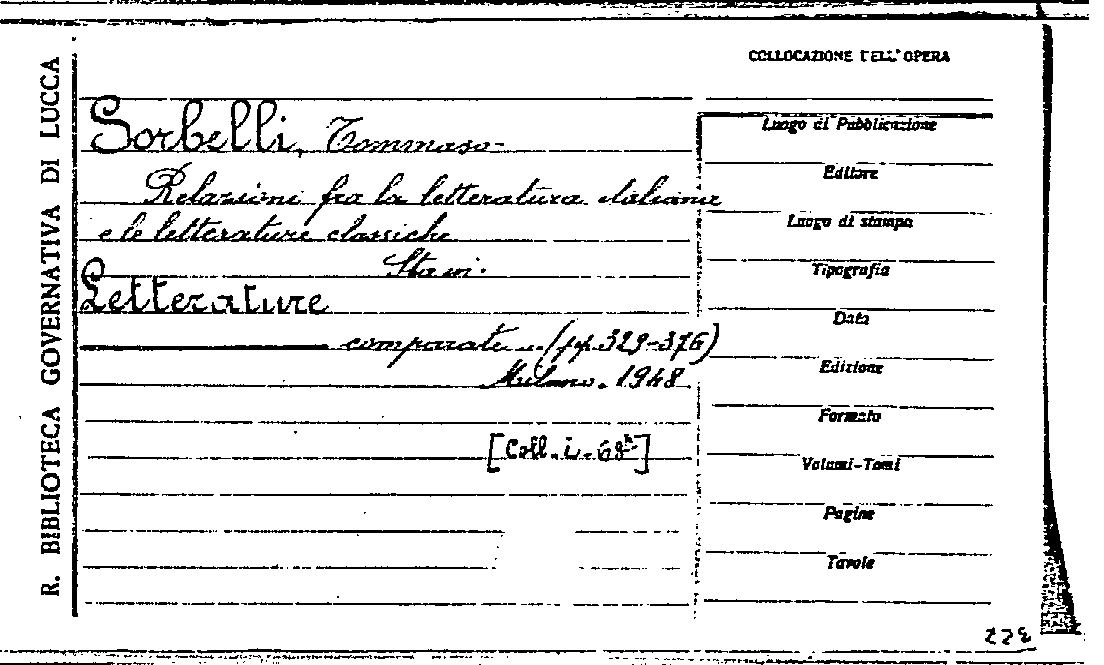 R. BIBLIOTECA GOVERNATIVA DI LUCCA
COLLOCAZIONE DELL'OPERA
Sorbelli, Tommaso
Relazioni fra la letteratura italiana
e le letterature classiche
Sta in:
Letterature
comparate (pp. 329-376)
Milano. 1948
[Coll. i. 68
Luogo di Pubblicazione
Editore
Luogo di stampa
Tipografia
Data
Edizione
Formato
Volumi-Tomi
Pagine
Tavole